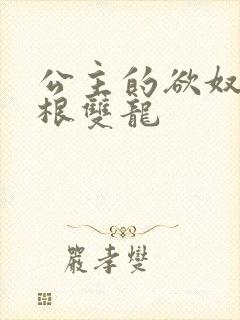 公主的欲奴
根雙龍
嚴孝燮